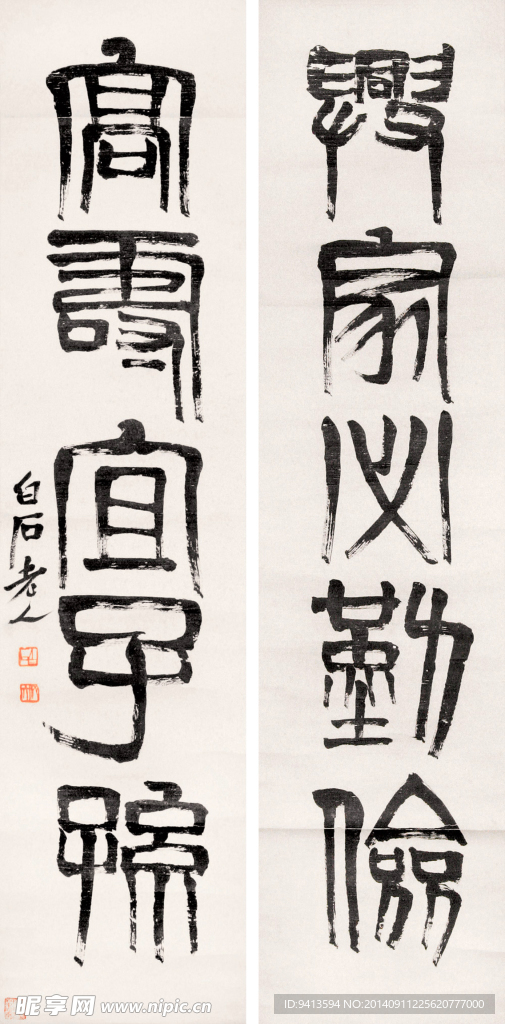 興家必勤儉
高壽宜子孫
白石老人
昵享网 www.nipic.cn
ID:9413594 NO:20140911225620777000